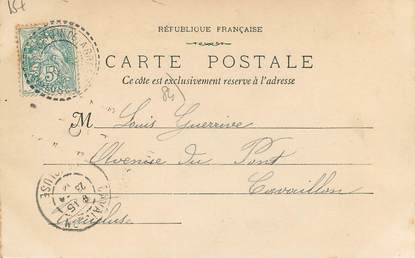 RÉPUBLIQUE FRANÇAISE
CARTE POSTALE
Ce côté est exclusivement reservé à l'adresse
84
M Louis Guerrive
Avenue du Pont
Cavaillon
Vaucluse